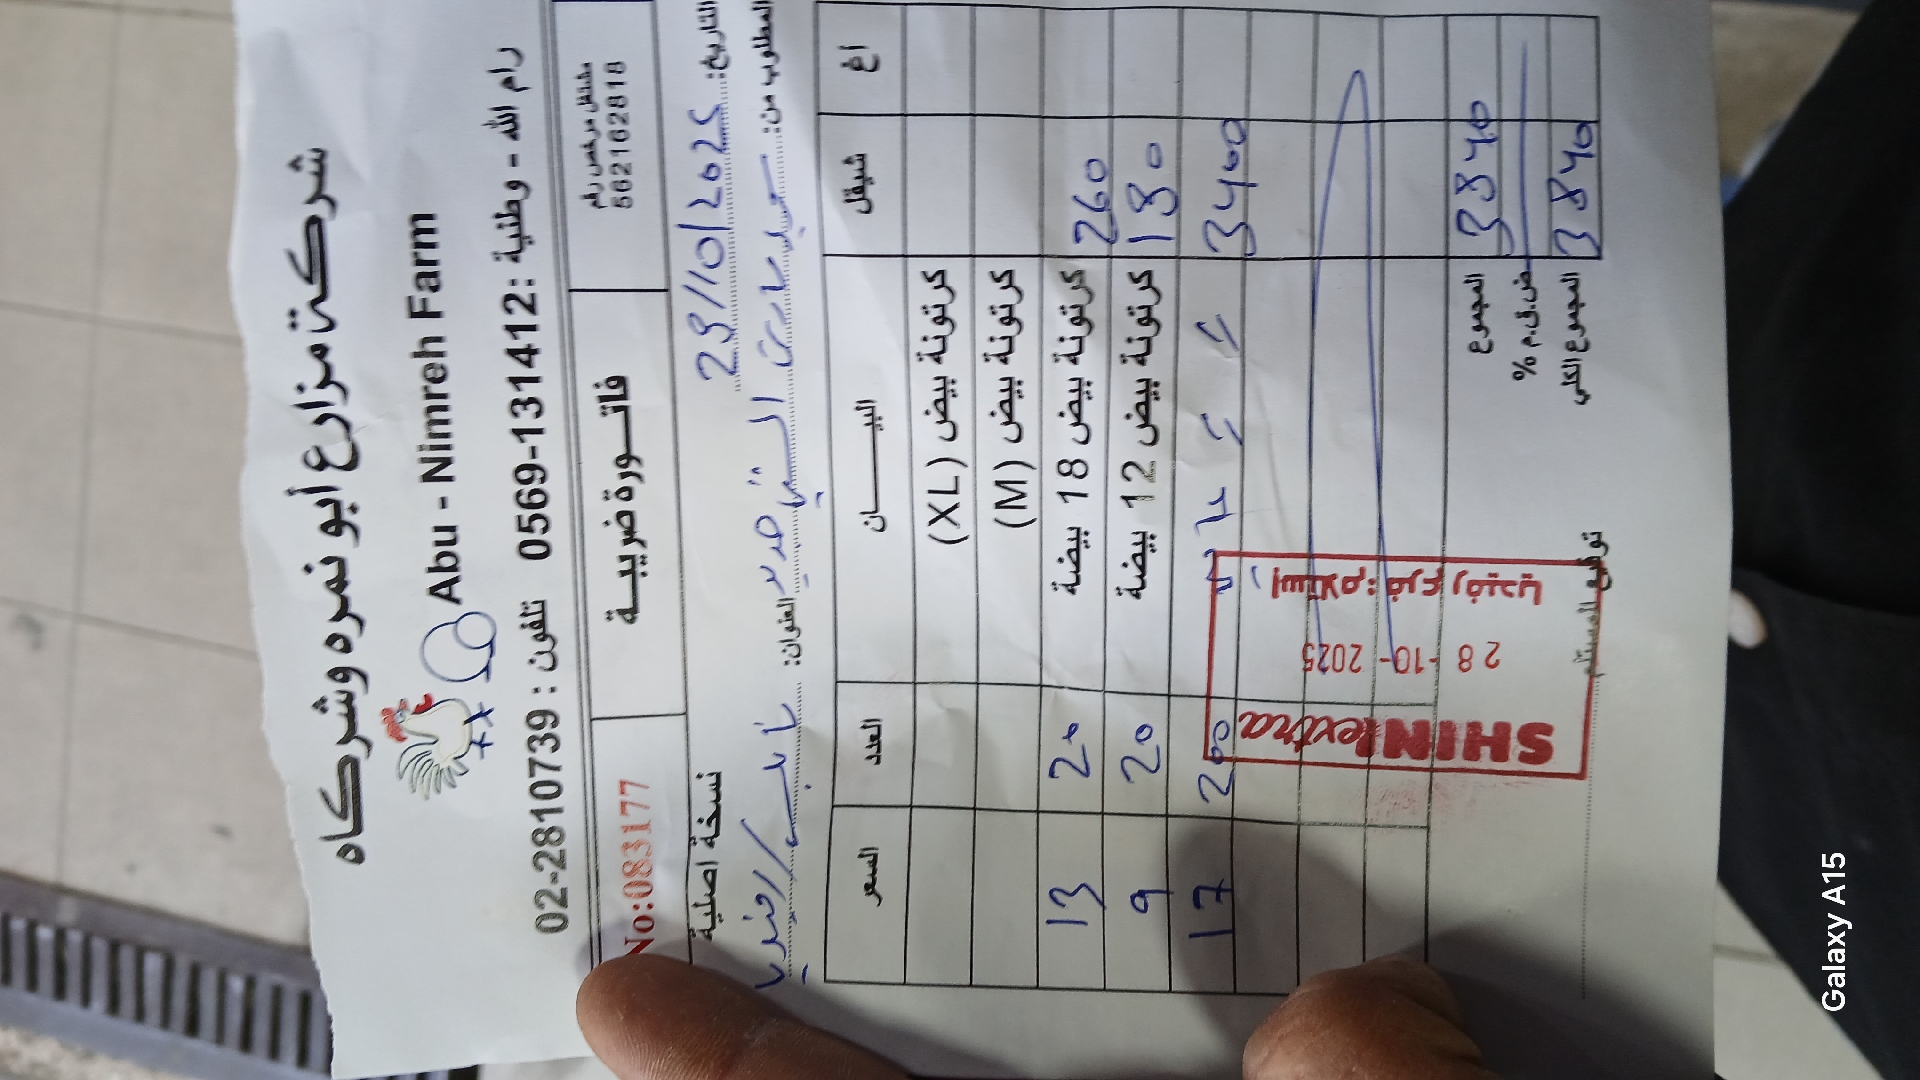 شركة مزارع أبو نمره وشركاه
Abu - Nimreh Farm
رام الله - وطنية : 0569-131412 تلفون : 02-2810739
مشتغل مرخص رقم
562162818
فاتورة ضريبية
No:083177
التاريخ: 29/10/2025
نسخة اصلية
المطلوب من:
العنوان: نابلس / رفيديا
أغ شيقل البيان العدد السعر
كرتونة بيض (XL)
كرتونة بيض (M)
260 كرتونة بيض 18 بيضة 20 13
180 كرتونة بيض 12 بيضة 20 9
3400 200 17
3840 المجموع
ض.ق.م %
3840 المجموع الكلي
توقيع المستلم
SHINI extra
28-10-2025
استلام: فرع رفيديا
Galaxy A15